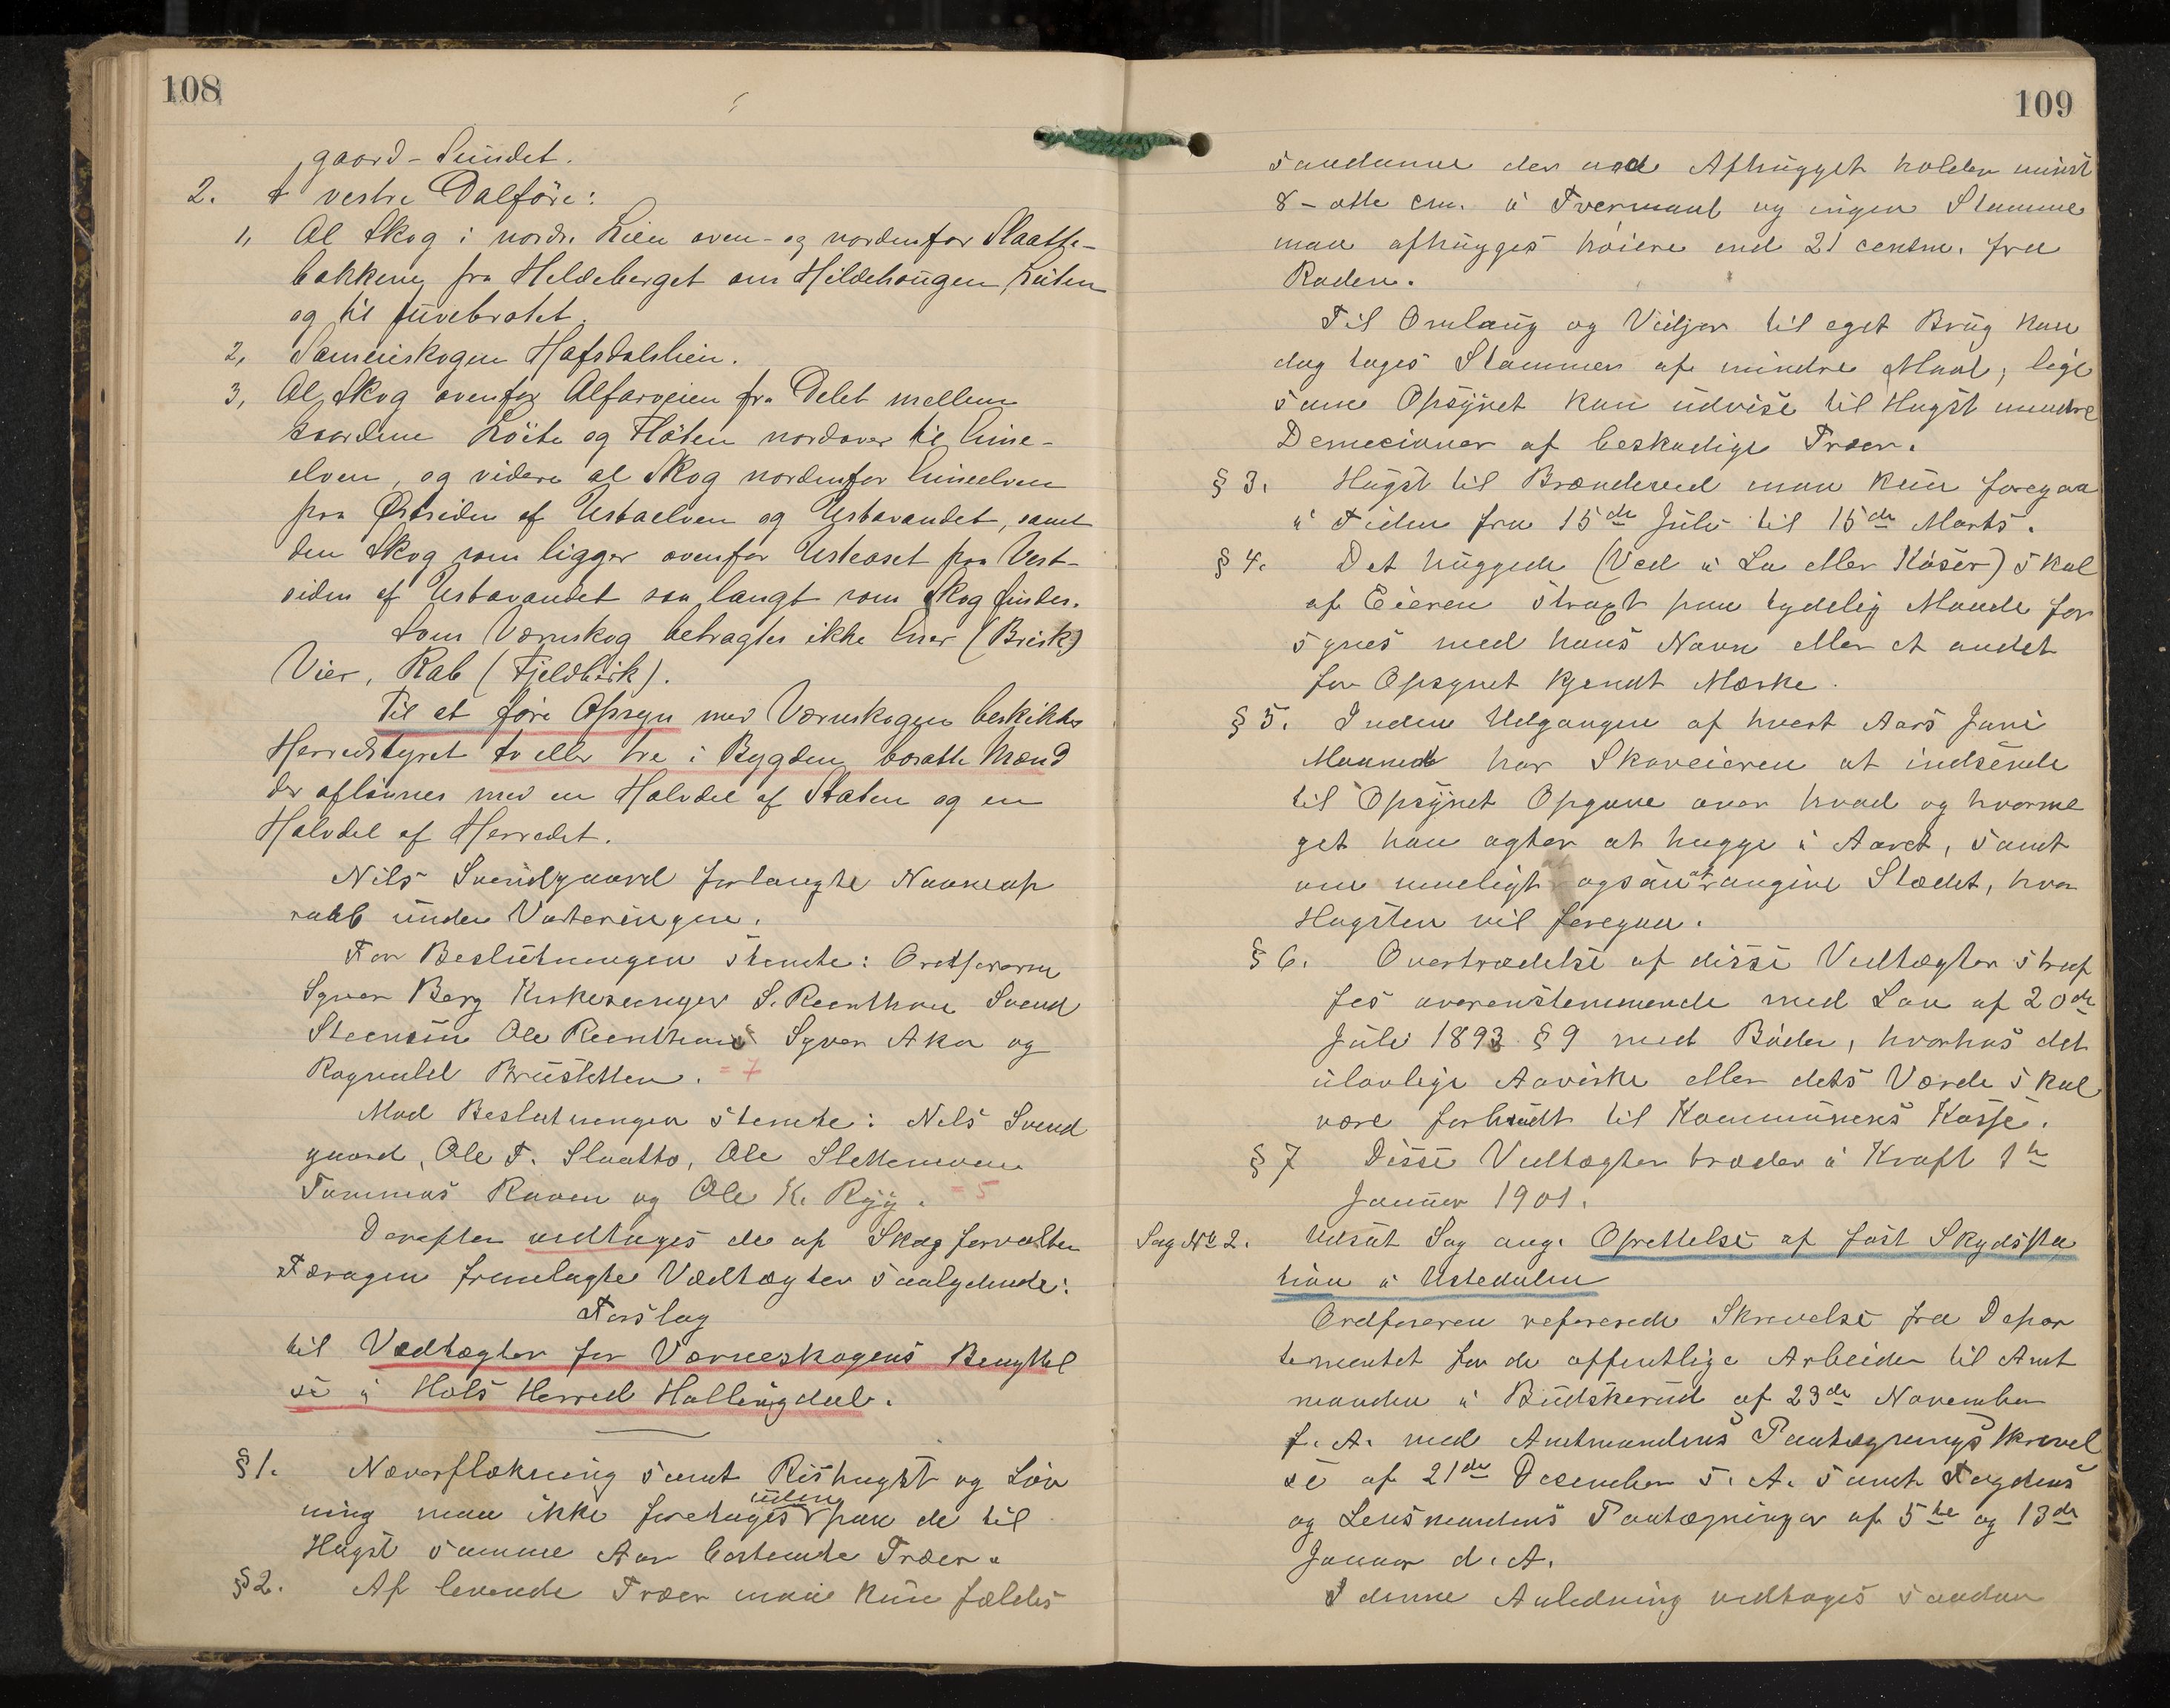 108
gaard - Sundet.
2. I vestre Dalføre:
1, Al Skog i nordre Lien oven- og nordenfor Slaatte-
bakkene fra Hildeberget om Hildehougen, Luten
og til Juvebrotet.
2, Sameieskogen Hafsdalslien.
3, Al Skog ovenfor Alfarveien fra Delet mellem
Gaardene Löite og Flöten nordover til
elven, og videre al Skog nordenfor
paa Østsiden af Ustaelven og Ustavandet, samt
den Skog som ligger ovenfor Usteoset paa Vest-
siden af Ustavandet saa langt som Skog findes.
Som Værnskog betragtes ikke Einer (Brisk)
Vier, Rab (Fjeldbirk).
Til at føre Opsyn med Værnskogen beskikker
Herredstyret to eller tre i Bygden bosatte Mænd
der aflønnes med en Halvdel af Staten og en
Halvdel af Herredet.
Nils Svendgaard forlangte Navneop
raab under Voteringen.
For Beslutningen stemte: Ordføreren
Syver Berg Kirkesanger S. Reinthon Svend
Steensen Ole Reinthon Syver Aka og
Ragnvald Brusletten. = 7
Mod Beslutningen stemte: Nils Svend
gaard, Ole T. Slaatto, Ole Slettemoen
Tommas Raaen og Ole K. Ryg. = 5
Derefter vedtoges de af Skogforvalter
Færagen fremlagte Vedtægter saalydende:
Forslag
til Vedtægter for Værneskogens Benyttel
se i Hols Herred Hallingdal.
§ 1. Næverflækning samt Rishugst og Løv
ning maa ikke foretages uden paa de til
Hugst samme Aar bestemte Træer.
§ 2. Af levende Træer maa kun fældes
109
saadanne der ved Afhugget holder minst
8 - otte cm. i Tvermaal og ingen Stamme
maa afhugges høiere end 21 centm. fra
Roden.
Til Omlaug og Vidjer til eget Brug kan
dog tages Stammer af mindre Maal, lige
som Opsynet kan udvise til Hugst mindre
Demecioner af beskadige Træer.
§ 3. Hugst til Brændeved maa kun foregaa
i Tiden fra 15de Juli til 15de Marts.
§ 4. Det huggede (Ved i La eller Køser) skal
af Eieren stragt paa tydelig Maade for
synes med hans Navn eller et andet
for Opsynet kjendt Mærke.
§ 5. Inden Udgangen af hvert Aars Juni
Maaned har Skoveieren at indsende
til Opsynet Opgave over hvad og hvorme
get han agter at hugge i Aaret, samt
om muligt ogsaa at angive Stedet, hvor
Hugsten vil foregaa.
§ 6. Overtrædelse af disse Vedtægter straf
fes overenstemmende med Lov af 20de
Juli 1893 § 9 med Bøder, hvorhos det
ulovlige Aavirke eller dets Værde skal
være forbrudt til Kommunens Kasse.
§ 7 Disse Vedtægter træder i Kraft 1te
Januar 1901.
Sag No 2. Udsat Sag ang. Oprettelse af fast Skydssta
tion i Ustedalen
Ordføreren refererede Skrivelse fra Depar
tementet for de offentlige Arbeider til Amt
manden i Budskerud af 23de November
f. A. med Amtmandens Paategningsskrivel
se af 21de Desember s. A. samt Fogdens
og Lensmandens Paategninger af 5te og 13de
Januar d. A.
I denne Anledning vedtoges saadan